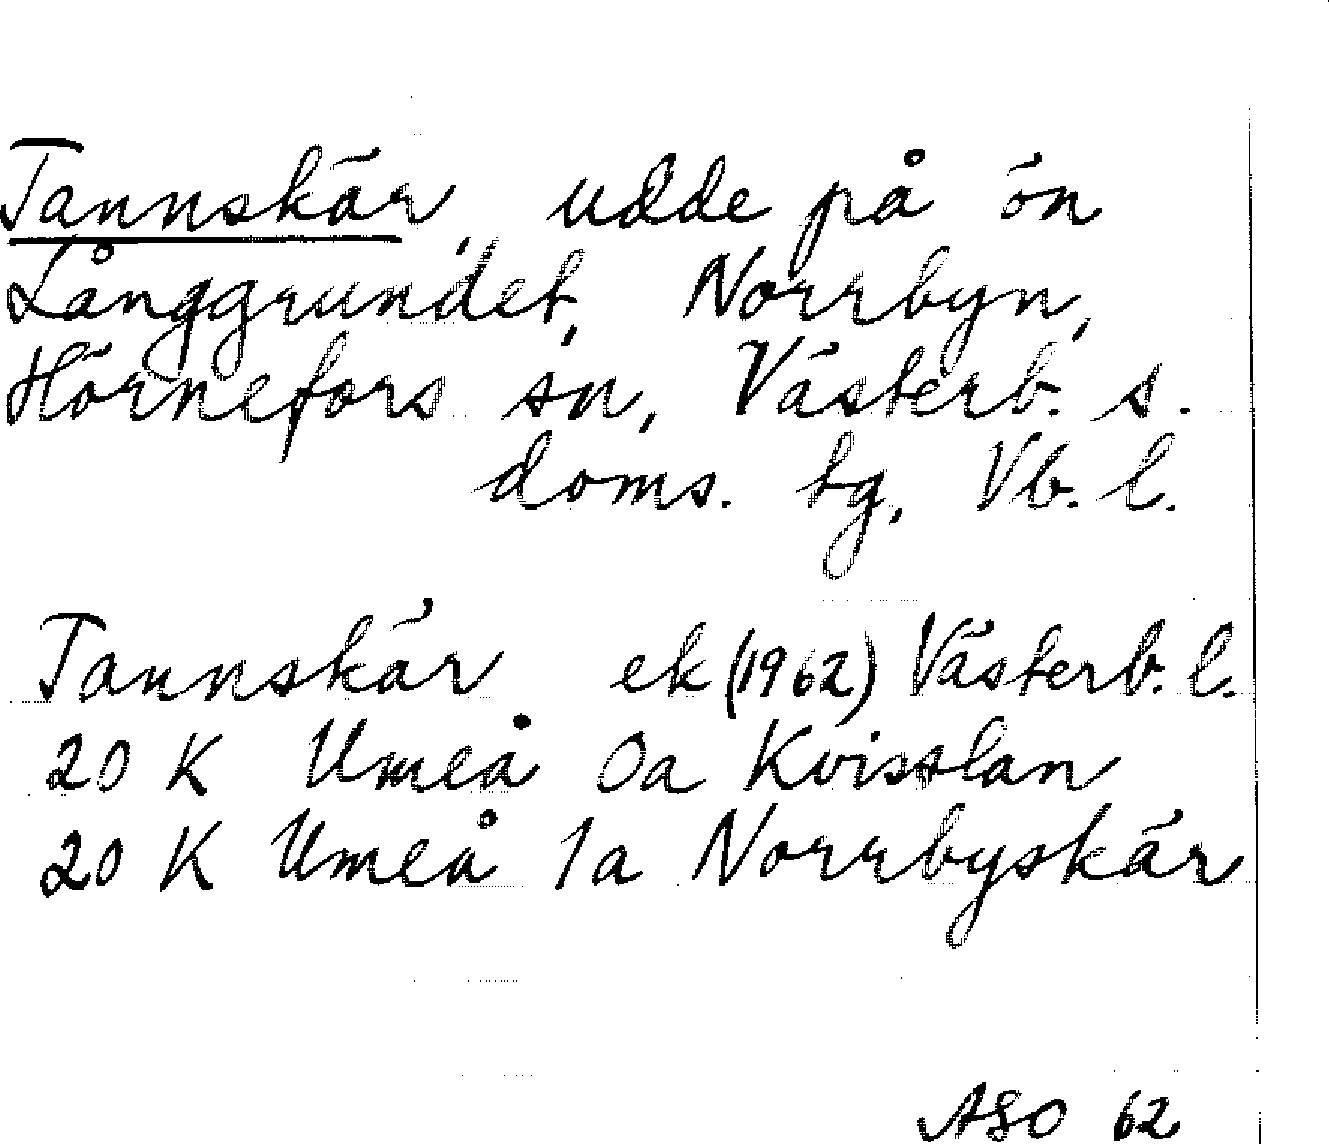 Tannskär, udde på ön
Långgrundet, Norrbyn,
Hörnefors sn, Västerb. s.
doms. tg, Vb. l.
Tannskär ek (1962) Västerb. l.
20 K Umeå 0a Kvisslan
20 K Umeå 1a Norrbyskär
ASO 62